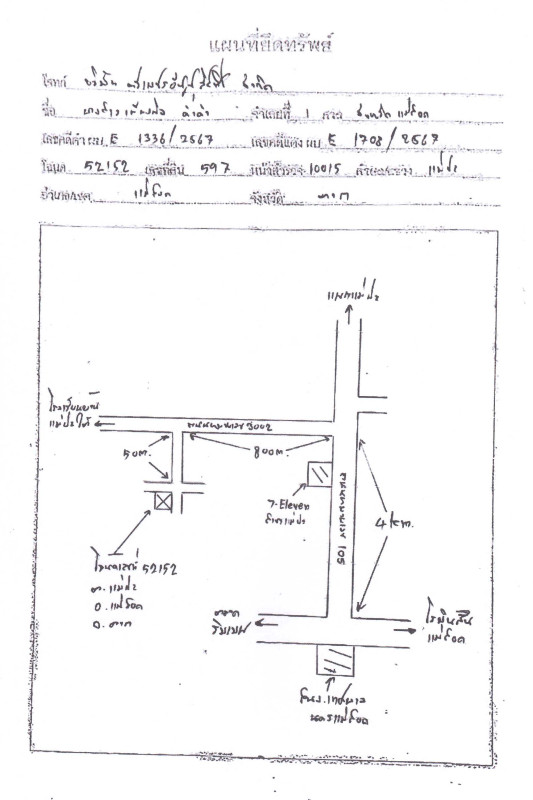 แผนที่ยึดทรัพย์
โจทก์ บริษัท จำกัด
ชื่อ จำเลยที่ 1 ศาล จังหวัด แม่สอด
เลขคดีดำ ผบ E 1336/2567 เลขคดีแดง ผบ E 1708/2567
โฉนด 52152 เลขที่ดิน 597 หน้าสำรวจ 10015 ตำบล/แขวง แม่ปะ
อำเภอ/เขต แม่สอด จังหวัด ตาก
แม่ปะ
โรงเรียนบ้าน
แม่ปะใต้
3002
50ม.
800ม.
7-Eleven
สาขาแม่ปะ
105
4 km.
โฉนดเลขที่ 52152
ต. แม่ปะ
อ. แม่สอด
จ. ตาก
ตลาด
ริมเมย
โรบินสัน
แม่สอด
เทศบาล
นครแม่สอด